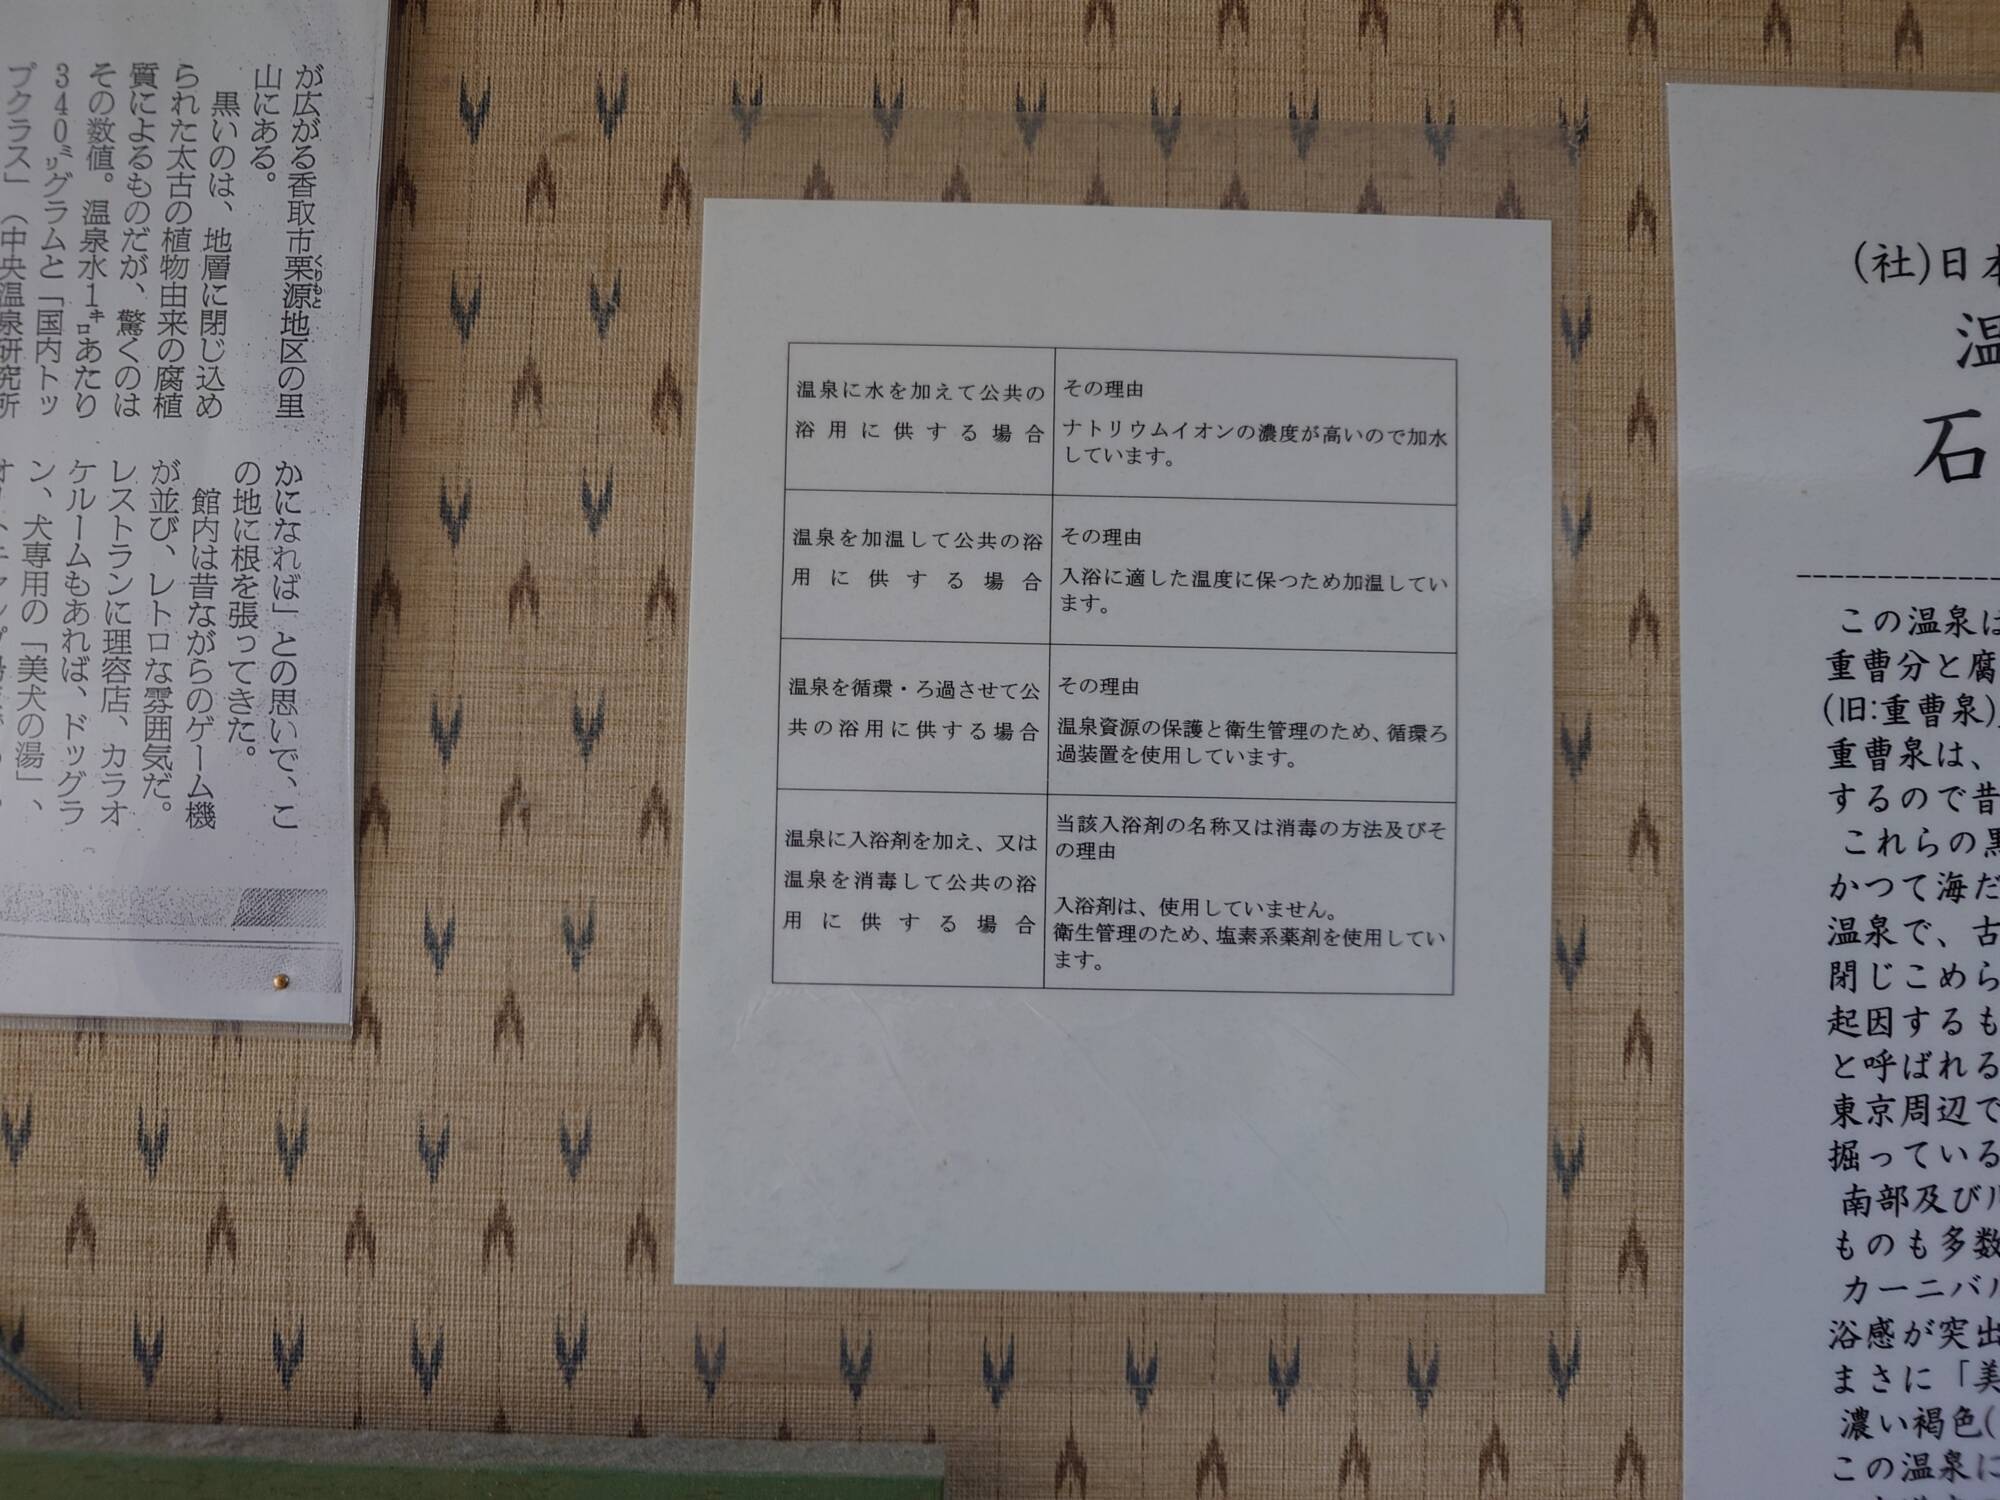 が広がる香取市栗源地区の里
くりもと
山にある。
黒いのは、地層に閉じ込め
られた太古の植物由来の腐植
質によるものだが、驚くのは
その数値。温泉水1㌔あたり
340㍉グラムと「国内トッ
プクラス」（中央温泉研究所
かになれば」との思いで、こ
の地に根を張ってきた。
館内は昔ながらのゲーム機
が並び、レトロな雰囲気だ。
レストランに理容店、カラオ
ケルームもあれば、ドッグラ
ン、犬専用の「美犬の湯」、
温泉に水を加えて公共の
浴用に供する場合
その理由
ナトリウムイオンの濃度が高いので加水
しています。
温泉を加温して公共の浴
用に供する場合
その理由
入浴に適した温度に保つため加温してい
ます。
温泉を循環・ろ過させて公
共の浴用に供する場合
その理由
温泉資源の保護と衛生管理のため、循環ろ
過装置を使用しています。
温泉に入浴剤を加え、又は
温泉を消毒して公共の浴
用に供する場合
当該入浴剤の名称又は消毒の方法及びそ
の理由
入浴剤は、使用していません。
衛生管理のため、塩素系薬剤を使用してい
ます。
(社)日本
温
石
この温泉は
重曹分と腐
(旧:重曹泉)
重曹泉は、
するので昔
これらの黒
かつて海だ
温泉で、古
閉じこめら
起因するも
と呼ばれる
東京周辺で
掘っている
南部及び
ものも多数
カーニバル
浴感が突出
まさに「美
濃い褐色(
この温泉に